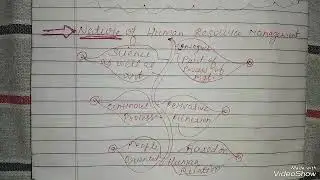 Nature of Human Resource Management
Science
as well as
art
Integral
Part of
Process of
Continuous
Process
Pervasive
Function
People
Oriented
Based on
Human
Relation
Made with
VideoShow